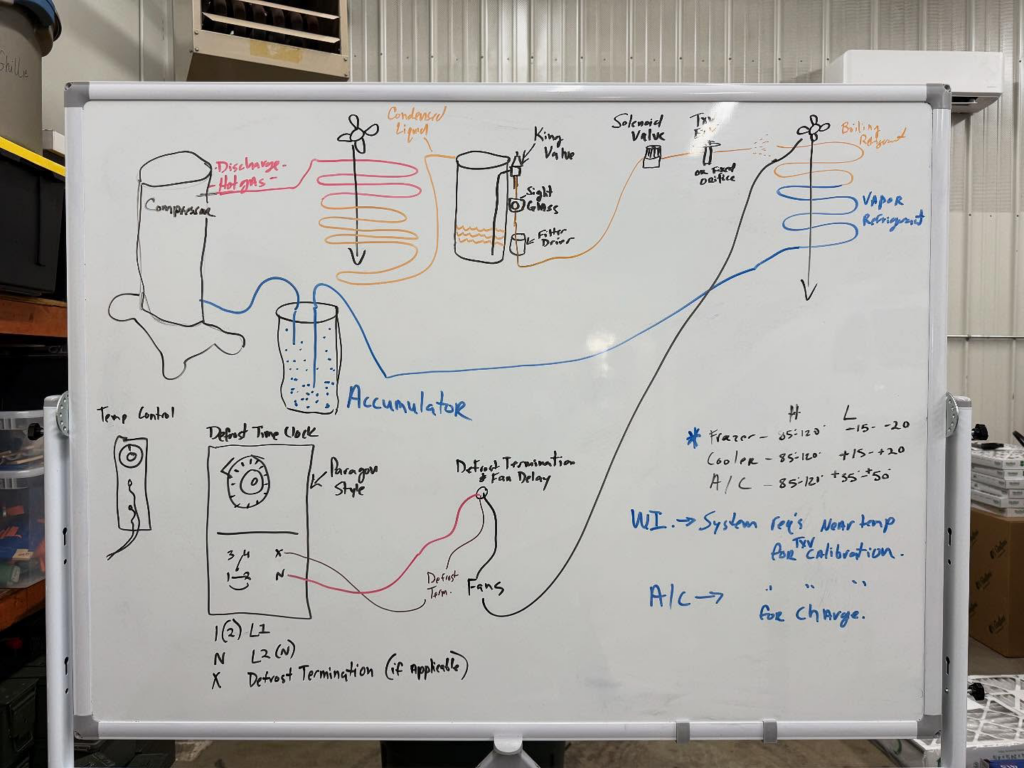 Condensed
Liquid
King
Valve
Solenoid
Valve
TXV
or Fixed
Orifice
Boiling
Refrigerant
Discharge
Hot gas
Compressor
Sight
Glass
Filter
Drier
VAPOR
Refrigerant
Accumulator
Temp Control
Defrost Time Clock
Paragon
Style
Defrost Termination
& Fan Delay
3 4 X
1 2 N
Defrost
Term.
Fans
1(2) L1
N L2(N)
X Defrost Termination (if Applicable)
H L
* Frezer - 85-120° -15- -20
Cooler - 85-120° +15-+20
A/C - 85-120° +35-+50°
WI. → System req's Near temp
for TXV calibration.
A/C → " " "
for charge.